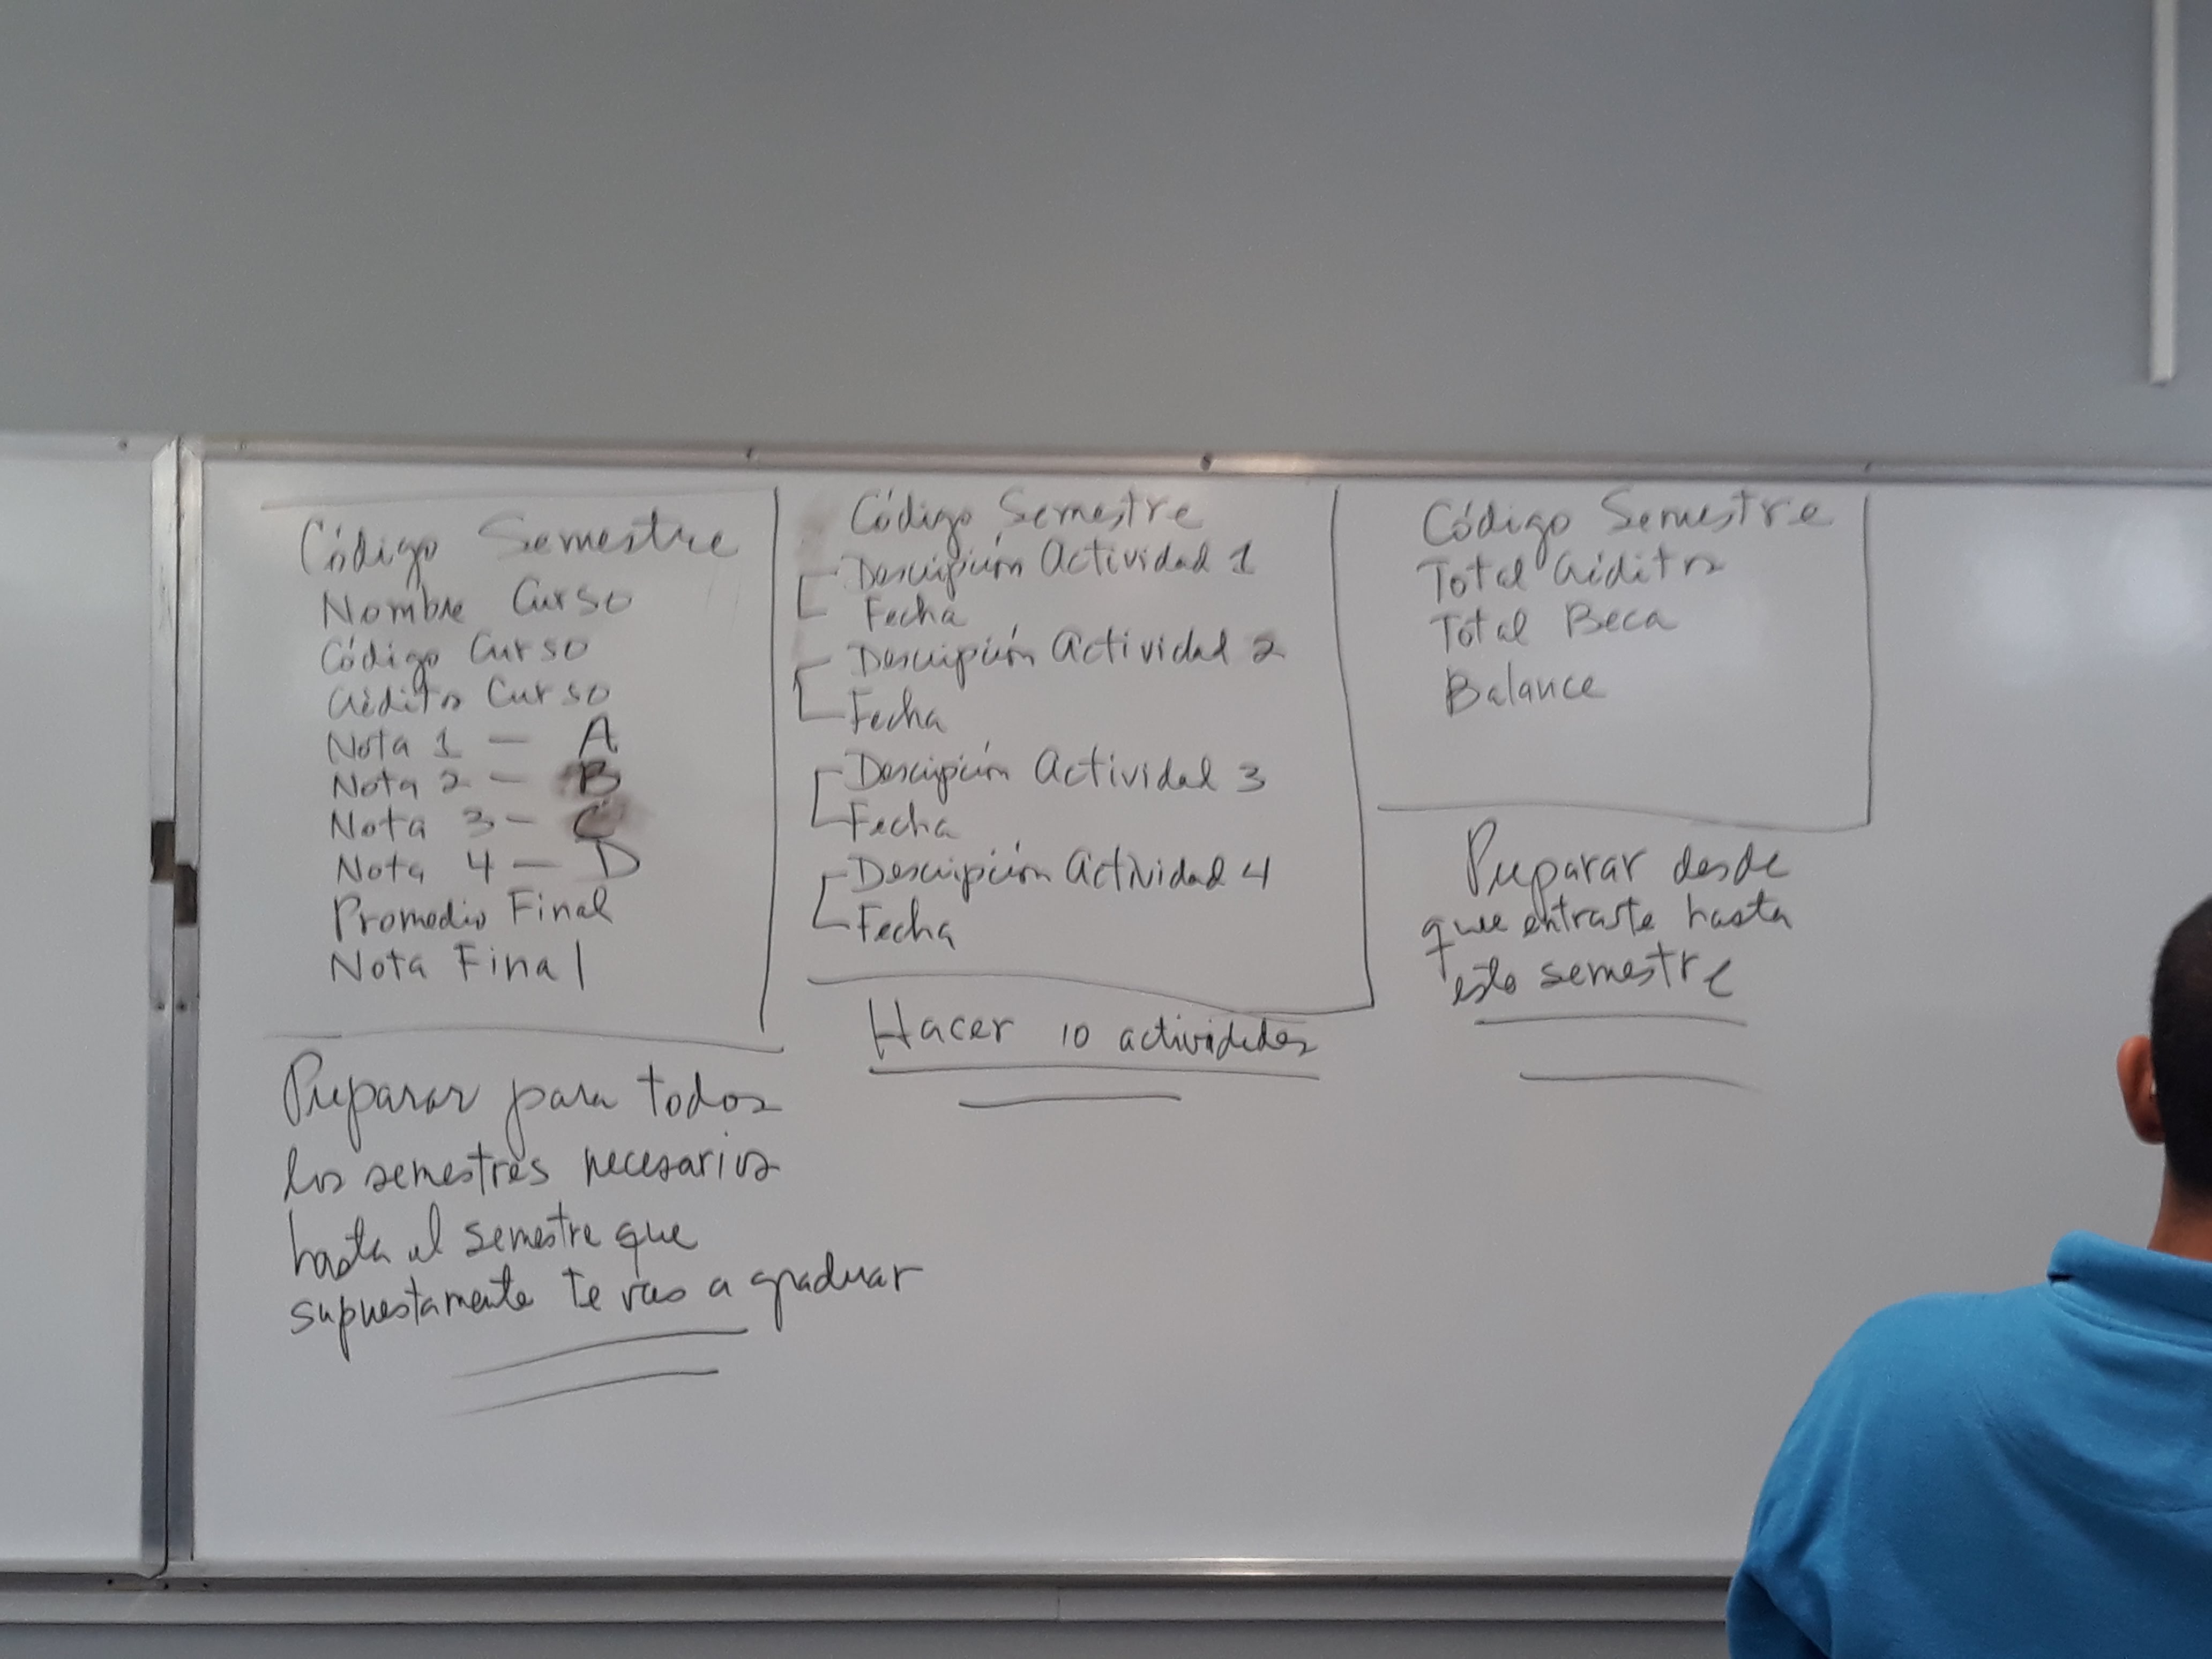 Código Semestre
Nombre Curso
Código Curso
Créditos Curso
Nota 1 — A
Nota 2 — B
Nota 3 — C
Nota 4 — D
Promedio Final
Nota Final
Preparar para todos
los semestres necesarios
hasta el semestre que
supuestamente te vas a graduar
Código Semestre
Descripción Actividad 1
Fecha
Descripción Actividad 2
Fecha
Descripción Actividad 3
Fecha
Descripción Actividad 4
Fecha
Hacer 10 actividades
Código Semestre
Total Créditos
Total Beca
Balance
Preparar desde
que entraste hasta
este semestre